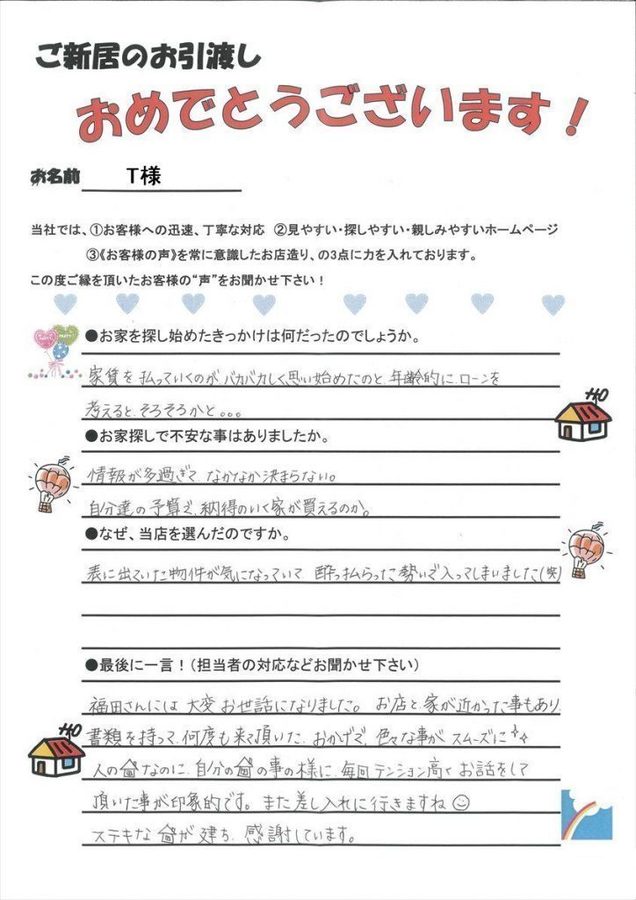 ご新居のお引渡し
おめでとうございます!
お名前 T様
当社では、①お客様への迅速、丁寧な対応 ②見やすい・探しやすい・親しみやすいホームページ
③《お客様の声》を常に意識したお店造り、の3点に力を入れております。
この度ご縁を頂いたお客様の“声”をお聞かせ下さい!
●お家を探し始めたきっかけは何だったのでしょうか。
家賃を払っていくのが、バカバカしく思い始めたのと、年齢的に、ローンを
考えると、そろそろかと。。。
●お家探しで不安な事はありましたか。
情報が多過ぎて なかなか決まらない。
自分達の予算で、納得のいく家が買えるのか。
●なぜ、当店を選んだのですか。
表に出ていた物件が気になっていて 酔っ払らった勢いで入ってしまいました(笑)
●最後に一言!(担当者の対応などお聞かせ下さい)
福田さんには 大変お世話になりました。 お店と家が近かった事もあり
書類を持って、何度も来て頂いた、おかげで、色々な事が スムーズに
人の家なのに、自分の家の事の様に、毎回テンション高くお話をして
頂いた事が印象的です。また差し入れに行きますね
ステキな家が建ち、感謝しています。